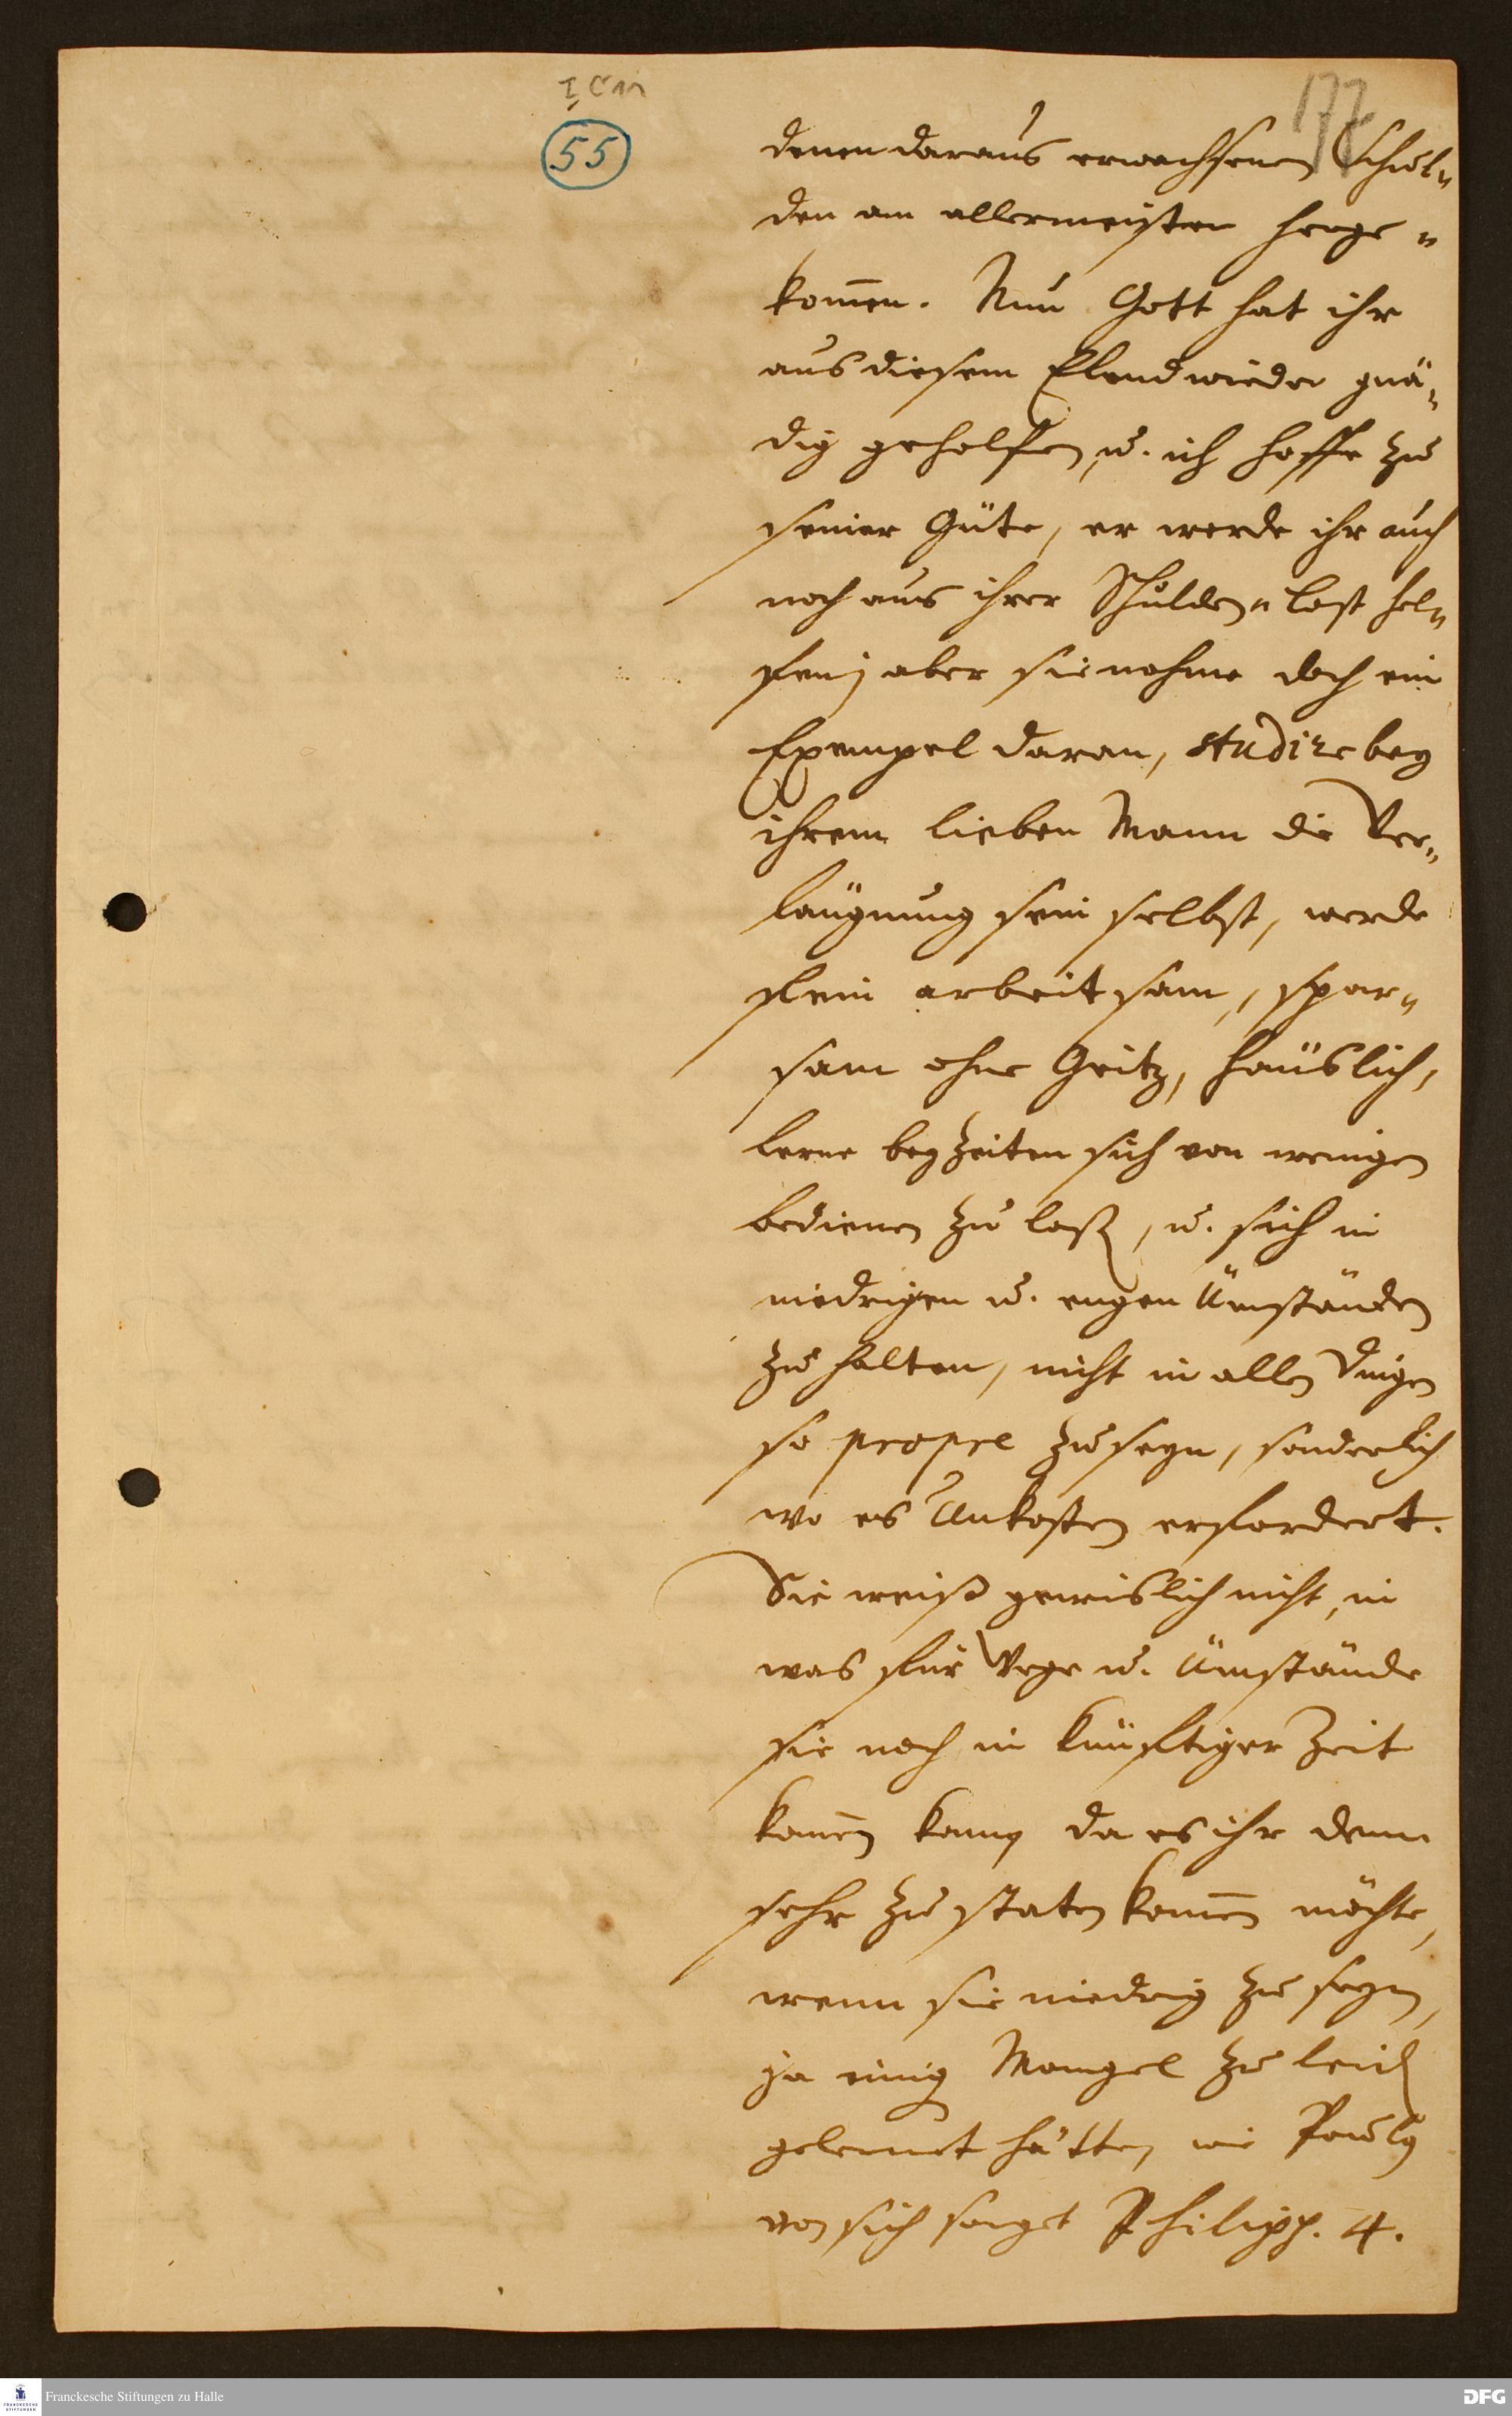 I C 11
177
55
denen daraus erwachsenen Schul-
den am allermeisten herge-
kom̅en. Nun Gott hat ihr
aus diesem Elend wieder gnä-
dig geholfen, u. ich hoffe zu
seiner Güte, er werde ihr auch
noch aus ihrer Schulden-last hel-
fen; aber sie nehme doch ein
Exempel daran, studire bey
ihrem lieben Mann die Ver-
läugnung sein selbst, werde
fein arbeitsam, spar-
sam ohne Geitz, häuslich,
lerne bey Zeiten sich von wenigen
bedienen zu laßen, u. sich in
niedrigen u. engen Umständen
zu halten, nicht in allen Dingen
so propre zu seyn, sonderlich
wo es Unkosten erfordert.
Sie weiß gewislich nicht, in
was für Wege u. Umstände
sie noch in künftiger Zeit
kom̅en kann, da es ihr denn
sehr zu staten kom̅en möchte,
wenn sie niedrig zu seyn,
ja einig Mangel zu leiden
gelernet hätte, wie Paulus
von sich saget Philipp. 4.
Franckesche Stiftungen zu Halle
DFG